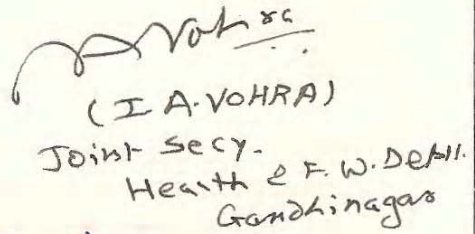 Vohra
(I A. VOHRA)
Joint Secy.
Health & F. W. Deptt.
Gandhinagar